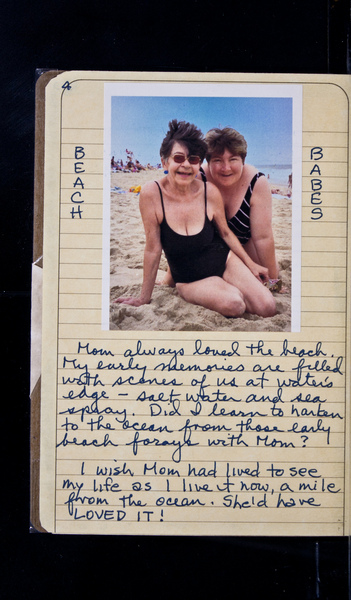 4
BEACH
BABES
Mom always loved the beach.
My early memories are filled
with scenes of us at water's
edge – salt water and sea
spray. Did I learn to harken
to the ocean from those early
beach forays with Mom?
I wish Mom had lived to see
my life as I live it now, a mile
from the ocean. She'd have
LOVED IT!